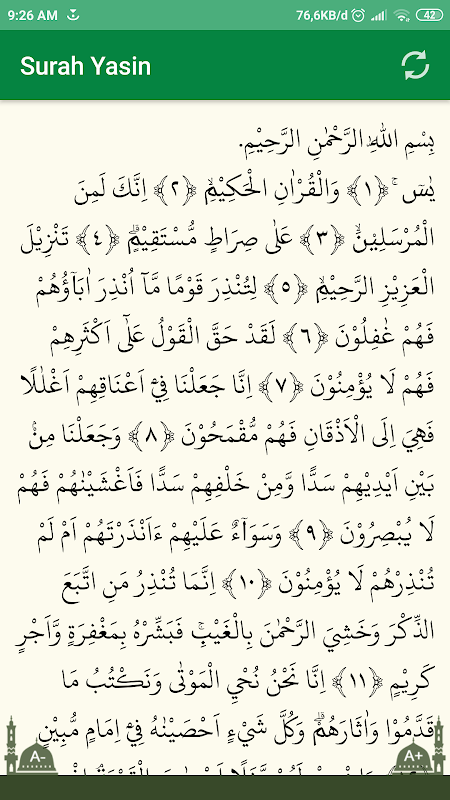 9:26 AM
76,6KB/d
42
Surah Yasin
بِسْمِ اللّٰهِ الرَّحْمٰنِ الرَّحِيْمِ.
يٰسۤ ۚ ﴿١﴾ وَالْقُرْاٰنِ الْحَكِيْمِۙ ﴿٢﴾ اِنَّكَ لَمِنَ
الْمُرْسَلِيْنَۙ ﴿٣﴾ عَلٰى صِرَاطٍ مُّسْتَقِيْمٍۗ ﴿٤﴾ تَنْزِيْلَ
الْعَزِيْزِ الرَّحِيْمِۙ ﴿٥﴾ لِتُنْذِرَ قَوْمًا مَّآ اُنْذِرَ اٰبَاۤؤُهُمْ
فَهُمْ غٰفِلُوْنَ ﴿٦﴾ لَقَدْ حَقَّ الْقَوْلُ عَلٰٓى اَكْثَرِهِمْ
فَهُمْ لَا يُؤْمِنُوْنَ ﴿٧﴾ اِنَّا جَعَلْنَا فِيْٓ اَعْنَاقِهِمْ اَغْلٰلًا
فَهِيَ اِلَى الْاَذْقَانِ فَهُمْ مُّقْمَحُوْنَ ﴿٨﴾ وَجَعَلْنَا مِنْۢ
بَيْنِ اَيْدِيْهِمْ سَدًّا وَّمِنْ خَلْفِهِمْ سَدًّا فَاَغْشَيْنٰهُمْ فَهُمْ
لَا يُبْصِرُوْنَ ﴿٩﴾ وَسَوَاۤءٌ عَلَيْهِمْ ءَاَنْذَرْتَهُمْ اَمْ لَمْ
تُنْذِرْهُمْ لَا يُؤْمِنُوْنَ ﴿١٠﴾ اِنَّمَا تُنْذِرُ مَنِ اتَّبَعَ
الذِّكْرَ وَخَشِيَ الرَّحْمٰنَ بِالْغَيْبِۚ فَبَشِّرْهُ بِمَغْفِرَةٍ وَّاَجْرٍ
كَرِيْمٍ ﴿١١﴾ اِنَّا نَحْنُ نُحْيِ الْمَوْتٰى وَنَكْتُبُ مَا
قَدَّمُوْا وَاٰثَارَهُمْۗ وَكُلَّ شَيْءٍ اَحْصَيْنٰهُ فِيْٓ اِمَامٍ مُّبِيْنٍ
A-
A+